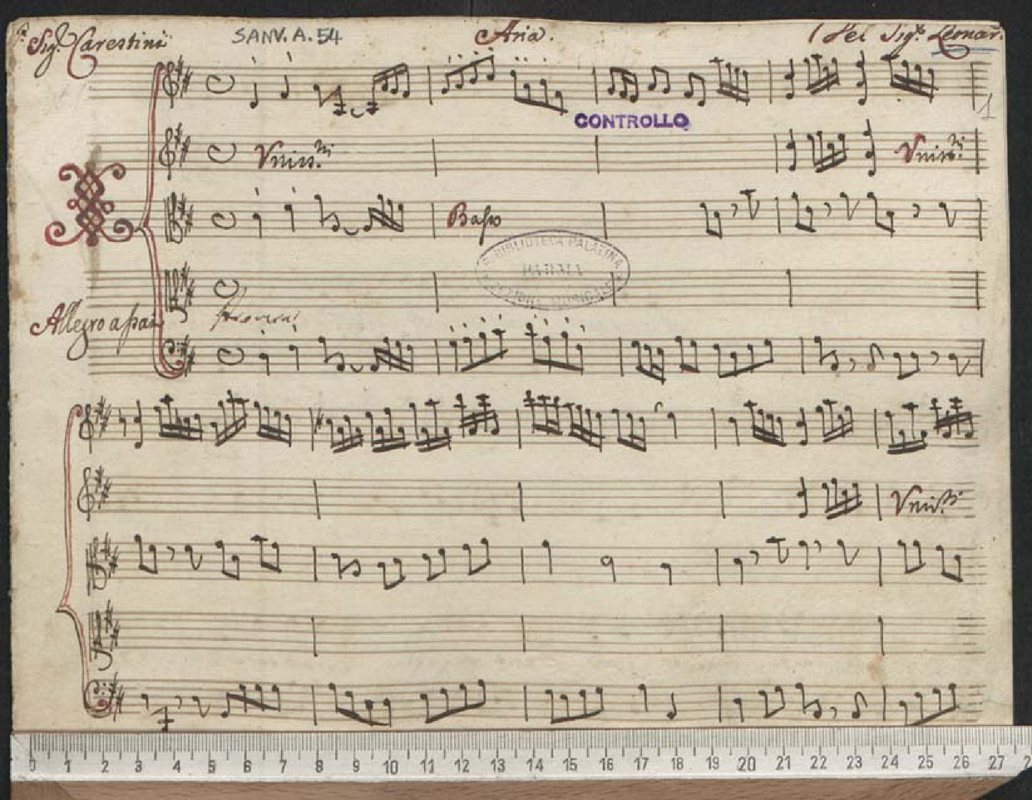 Sig.r Carestini SANV. A. 54 Aria. Del Sig.r Leonar
CONTROLLO
1
Unis.ni Unis.ni
Basso
BIBLIOTECA PALATINA
PARMA
SEZIONE MUSICALE
Allegro assai
Unis.ni
0 1 2 3 4 5 6 7 8 9 10 11 12 13 14 15 16 17 18 19 20 21 22 23 24 25 26 27